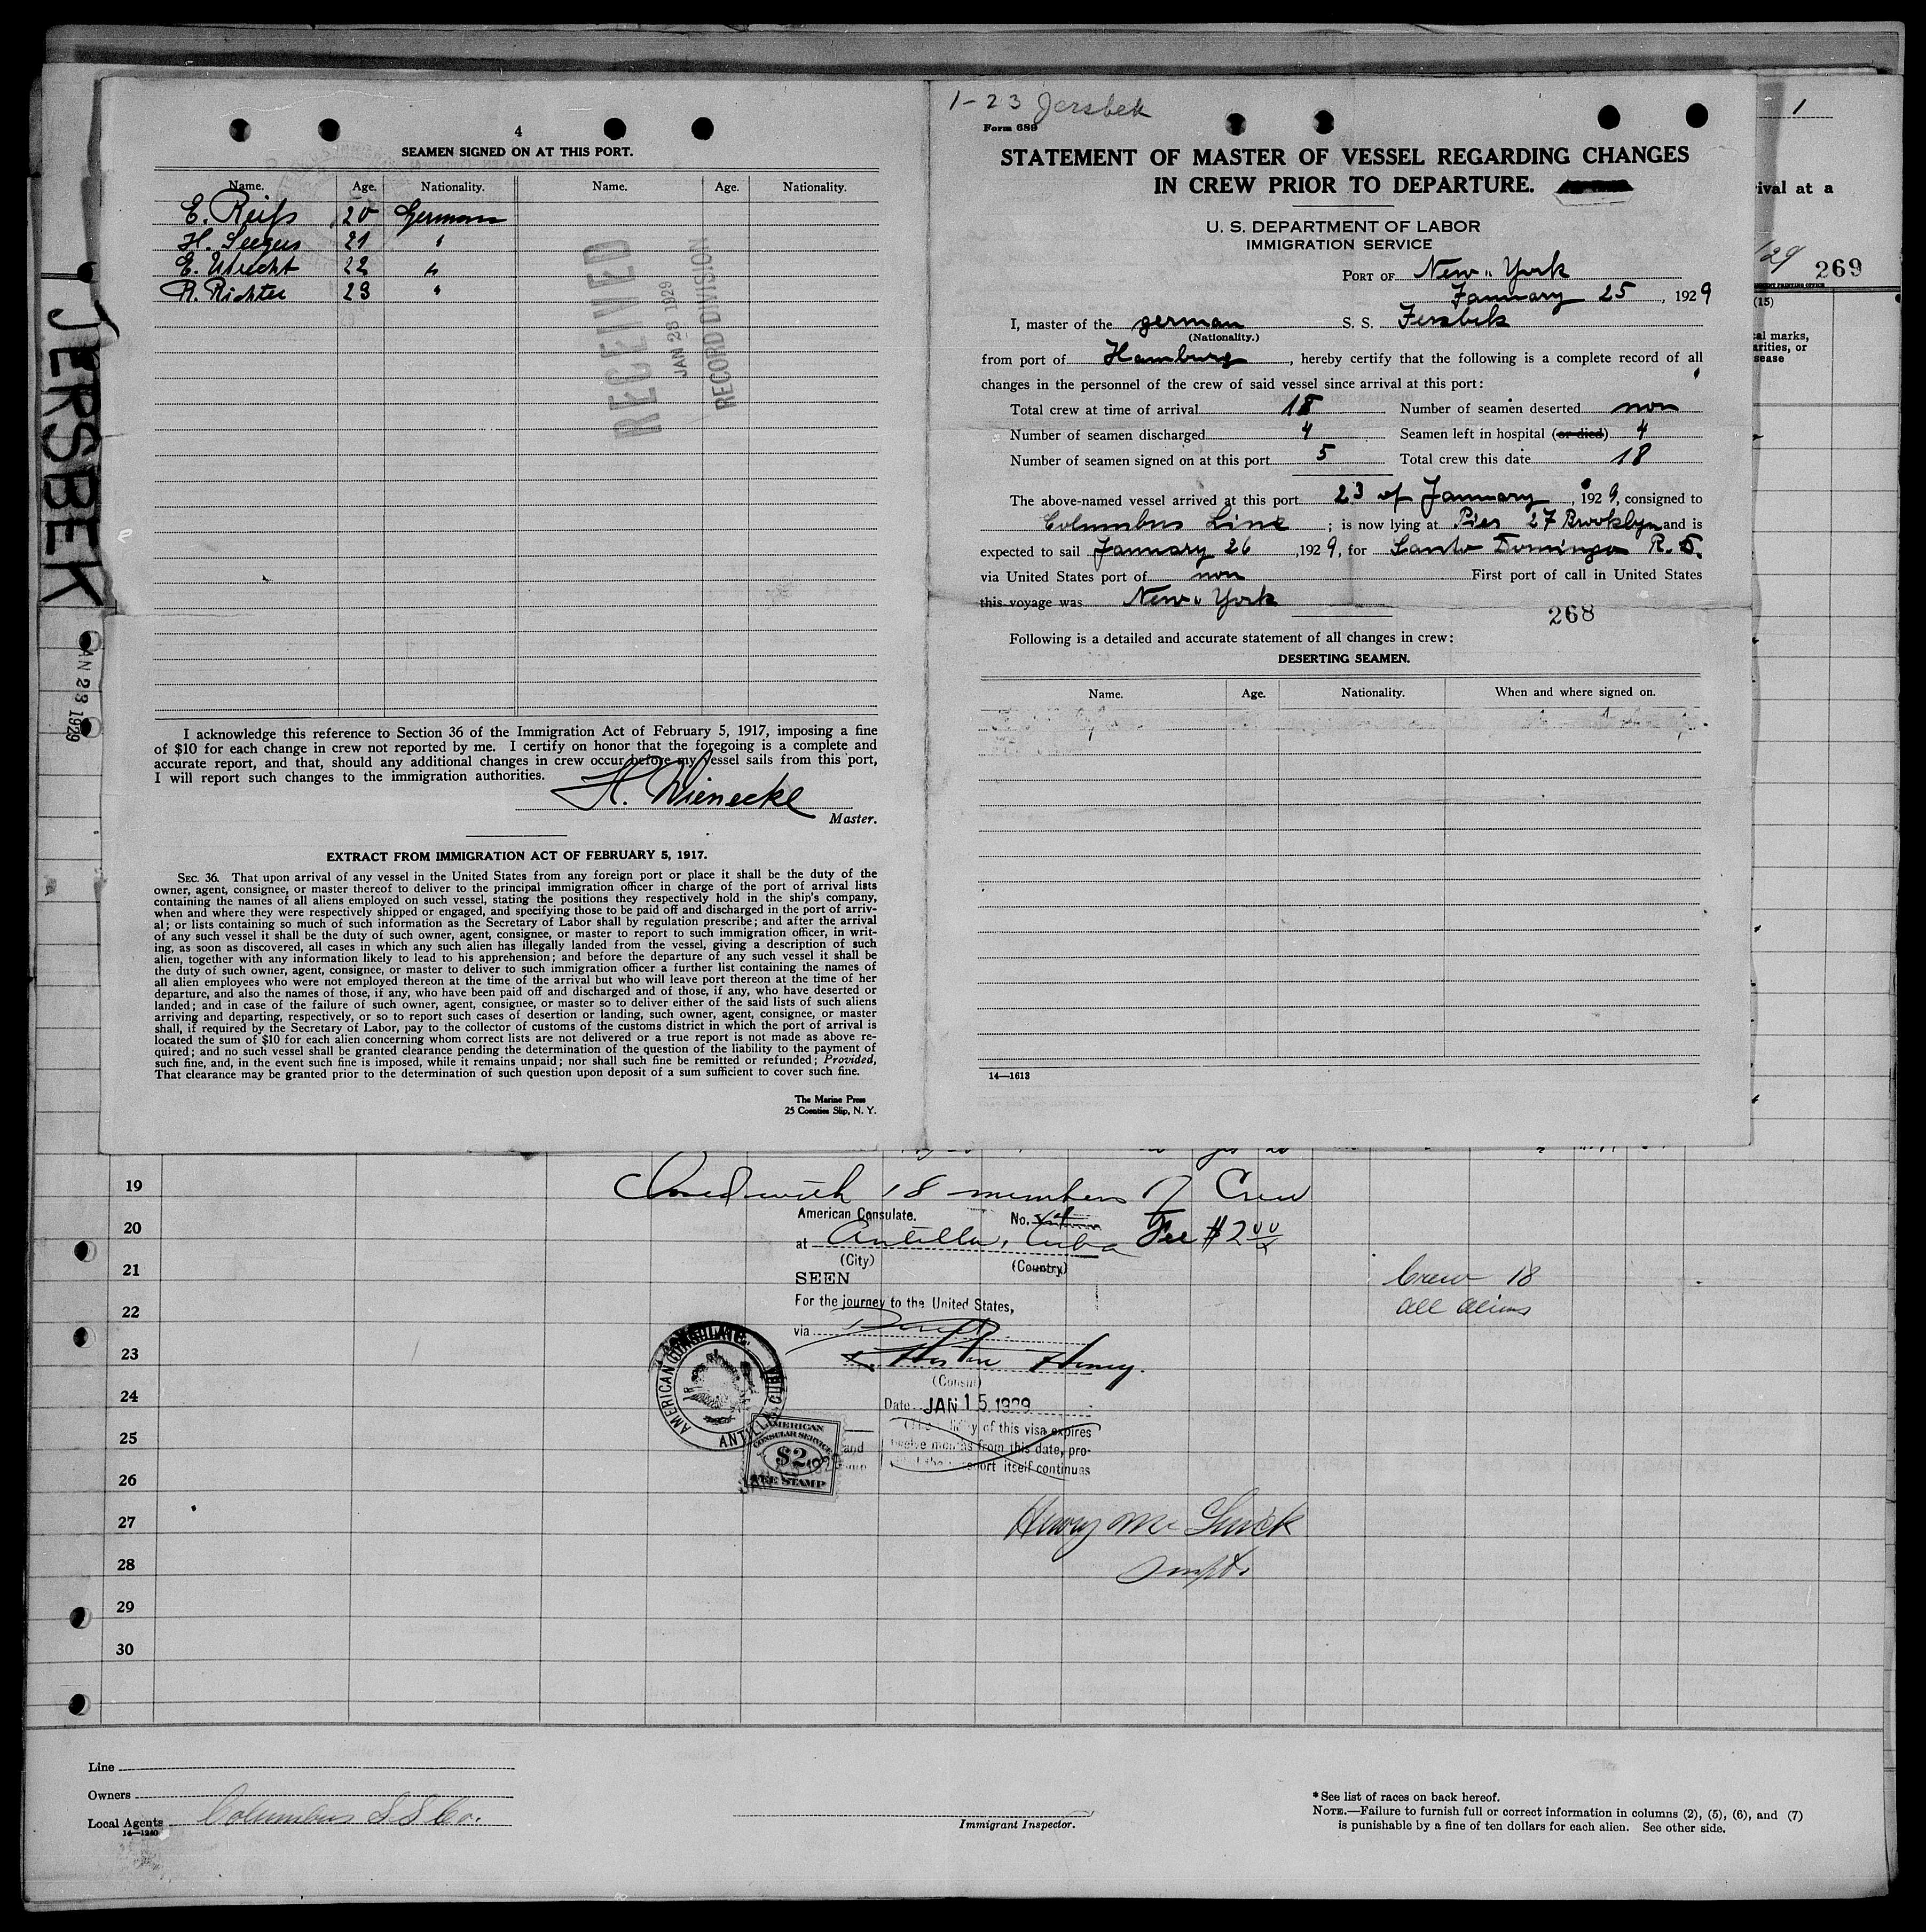 4
SEAMEN SIGNED ON AT THIS PORT.
Name. Age. Nationality. Name. Age. Nationality.
E. Reiß 20 German
H. Seegers 21 "
E. Utrecht 22 "
R. Richter 23 "
RECEIVED
JAN 28 1929
RECORD DIVISION
I acknowledge this reference to Section 36 of the Immigration Act of February 5, 1917, imposing a fine
of $10 for each change in crew not reported by me. I certify on honor that the foregoing is a complete and
accurate report, and that, should any additional changes in crew occur before my vessel sails from this port,
I will report such changes to the immigration authorities.
H. Wienecke
Master.
EXTRACT FROM IMMIGRATION ACT OF FEBRUARY 5, 1917.
SEC. 36. That upon arrival of any vessel in the United States from any foreign port or place it shall be the duty of the
owner, agent, consignee, or master thereof to deliver to the principal immigration officer in charge of the port of arrival lists
containing the names of all aliens employed on such vessel, stating the positions they respectively hold in the ship's company,
when and where they were respectively shipped or engaged, and specifying those to be paid off and discharged in the port of arriv-
al; or lists containing so much of such information as the Secretary of Labor shall by regulation prescribe; and after the arrival
of any such vessel it shall be the duty of such owner, agent, consignee, or master to report to such immigration officer, in writ-
ing, as soon as discovered, all cases in which any such alien has illegally landed from the vessel, giving a description of such
alien, together with any information likely to lead to his apprehension; and before the departure of any such vessel it shall be
the duty of such owner, agent, consignee, or master to deliver to such immigration officer a further list containing the names of
all alien employees who were not employed thereon at the time of the arrival but who will leave port thereon at the time of her
departure, and also the names of those, if any, who have been paid off and discharged and of those, if any, who have deserted or
landed; and in case of the failure of such owner, agent, consignee, or master so to deliver either of the said lists of such aliens
arriving and departing, respectively, or so to report such cases of desertion or landing, such owner, agent, consignee, or master
shall, if required by the Secretary of Labor, pay to the collector of customs of the customs district in which the port of arrival is
located the sum of $10 for each alien concerning whom correct lists are not delivered or a true report is not made as above re-
quired; and no such vessel shall be granted clearance pending the determination of the question of the liability to the payment of
such fine, and, in the event such fine is imposed, while it remains unpaid; nor shall such fine be remitted or refunded; Provided,
That clearance may be granted prior to the determination of such question upon deposit of a sum sufficient to cover such fine.
The Marine Press
25 Coenties Slip, N. Y.
1-23 Jersbek
Form 689
STATEMENT OF MASTER OF VESSEL REGARDING CHANGES
IN CREW PRIOR TO DEPARTURE.
U. S. DEPARTMENT OF LABOR
IMMIGRATION SERVICE
PORT OF New York
January 25, 1929
I, master of the german S. S. Jersbek
(Nationality.)
from port of Hamburg, hereby certify that the following is a complete record of all
changes in the personnel of the crew of said vessel since arrival at this port:
Total crew at time of arrival 18 Number of seamen deserted non
Number of seamen discharged 4 Seamen left in hospital (or died) 4
Number of seamen signed on at this port 5 Total crew this date 18
The above-named vessel arrived at this port 23 of January, 1929, consigned to
Columbus Line; is now lying at Pier 27 Brooklyn and is
expected to sail January 26, 1929, for Santo Domingo R. D.
via United States port of non First port of call in United States
this voyage was New York
268
Following is a detailed and accurate statement of all changes in crew:
DESERTING SEAMEN.
Name. Age. Nationality. When and where signed on.
14—1613
1
ival at a
29 269
(15)
al marks,
arities, or
sease
JERSBEK
AN 23 1929
19
Closed with 18 members of Crew
20
American Consulate. No.
at Antilla, Cuba Fee $2 00
(City) (Country)
21
SEEN
Crew 18
all aliens
22
For the journey to the United States,
via
23
Henry.
(Consul)
24
Date JAN 15 1929
of this visa expires
25
twelve months from this date, pro-
itself continues
and
AMERICAN CONSULATE
ANTILLA, CUBA
AMERICAN
CONSULAR SERVICE
$2
FEE STAMP
26
27
Henry
28
29
30
Line
Owners
Local Agents Columbus S S Co.
14—1240
Immigrant Inspector.
* See list of races on back hereof.
NOTE.—Failure to furnish full or correct information in columns (2), (5), (6), and (7)
is punishable by a fine of ten dollars for each alien. See other side.